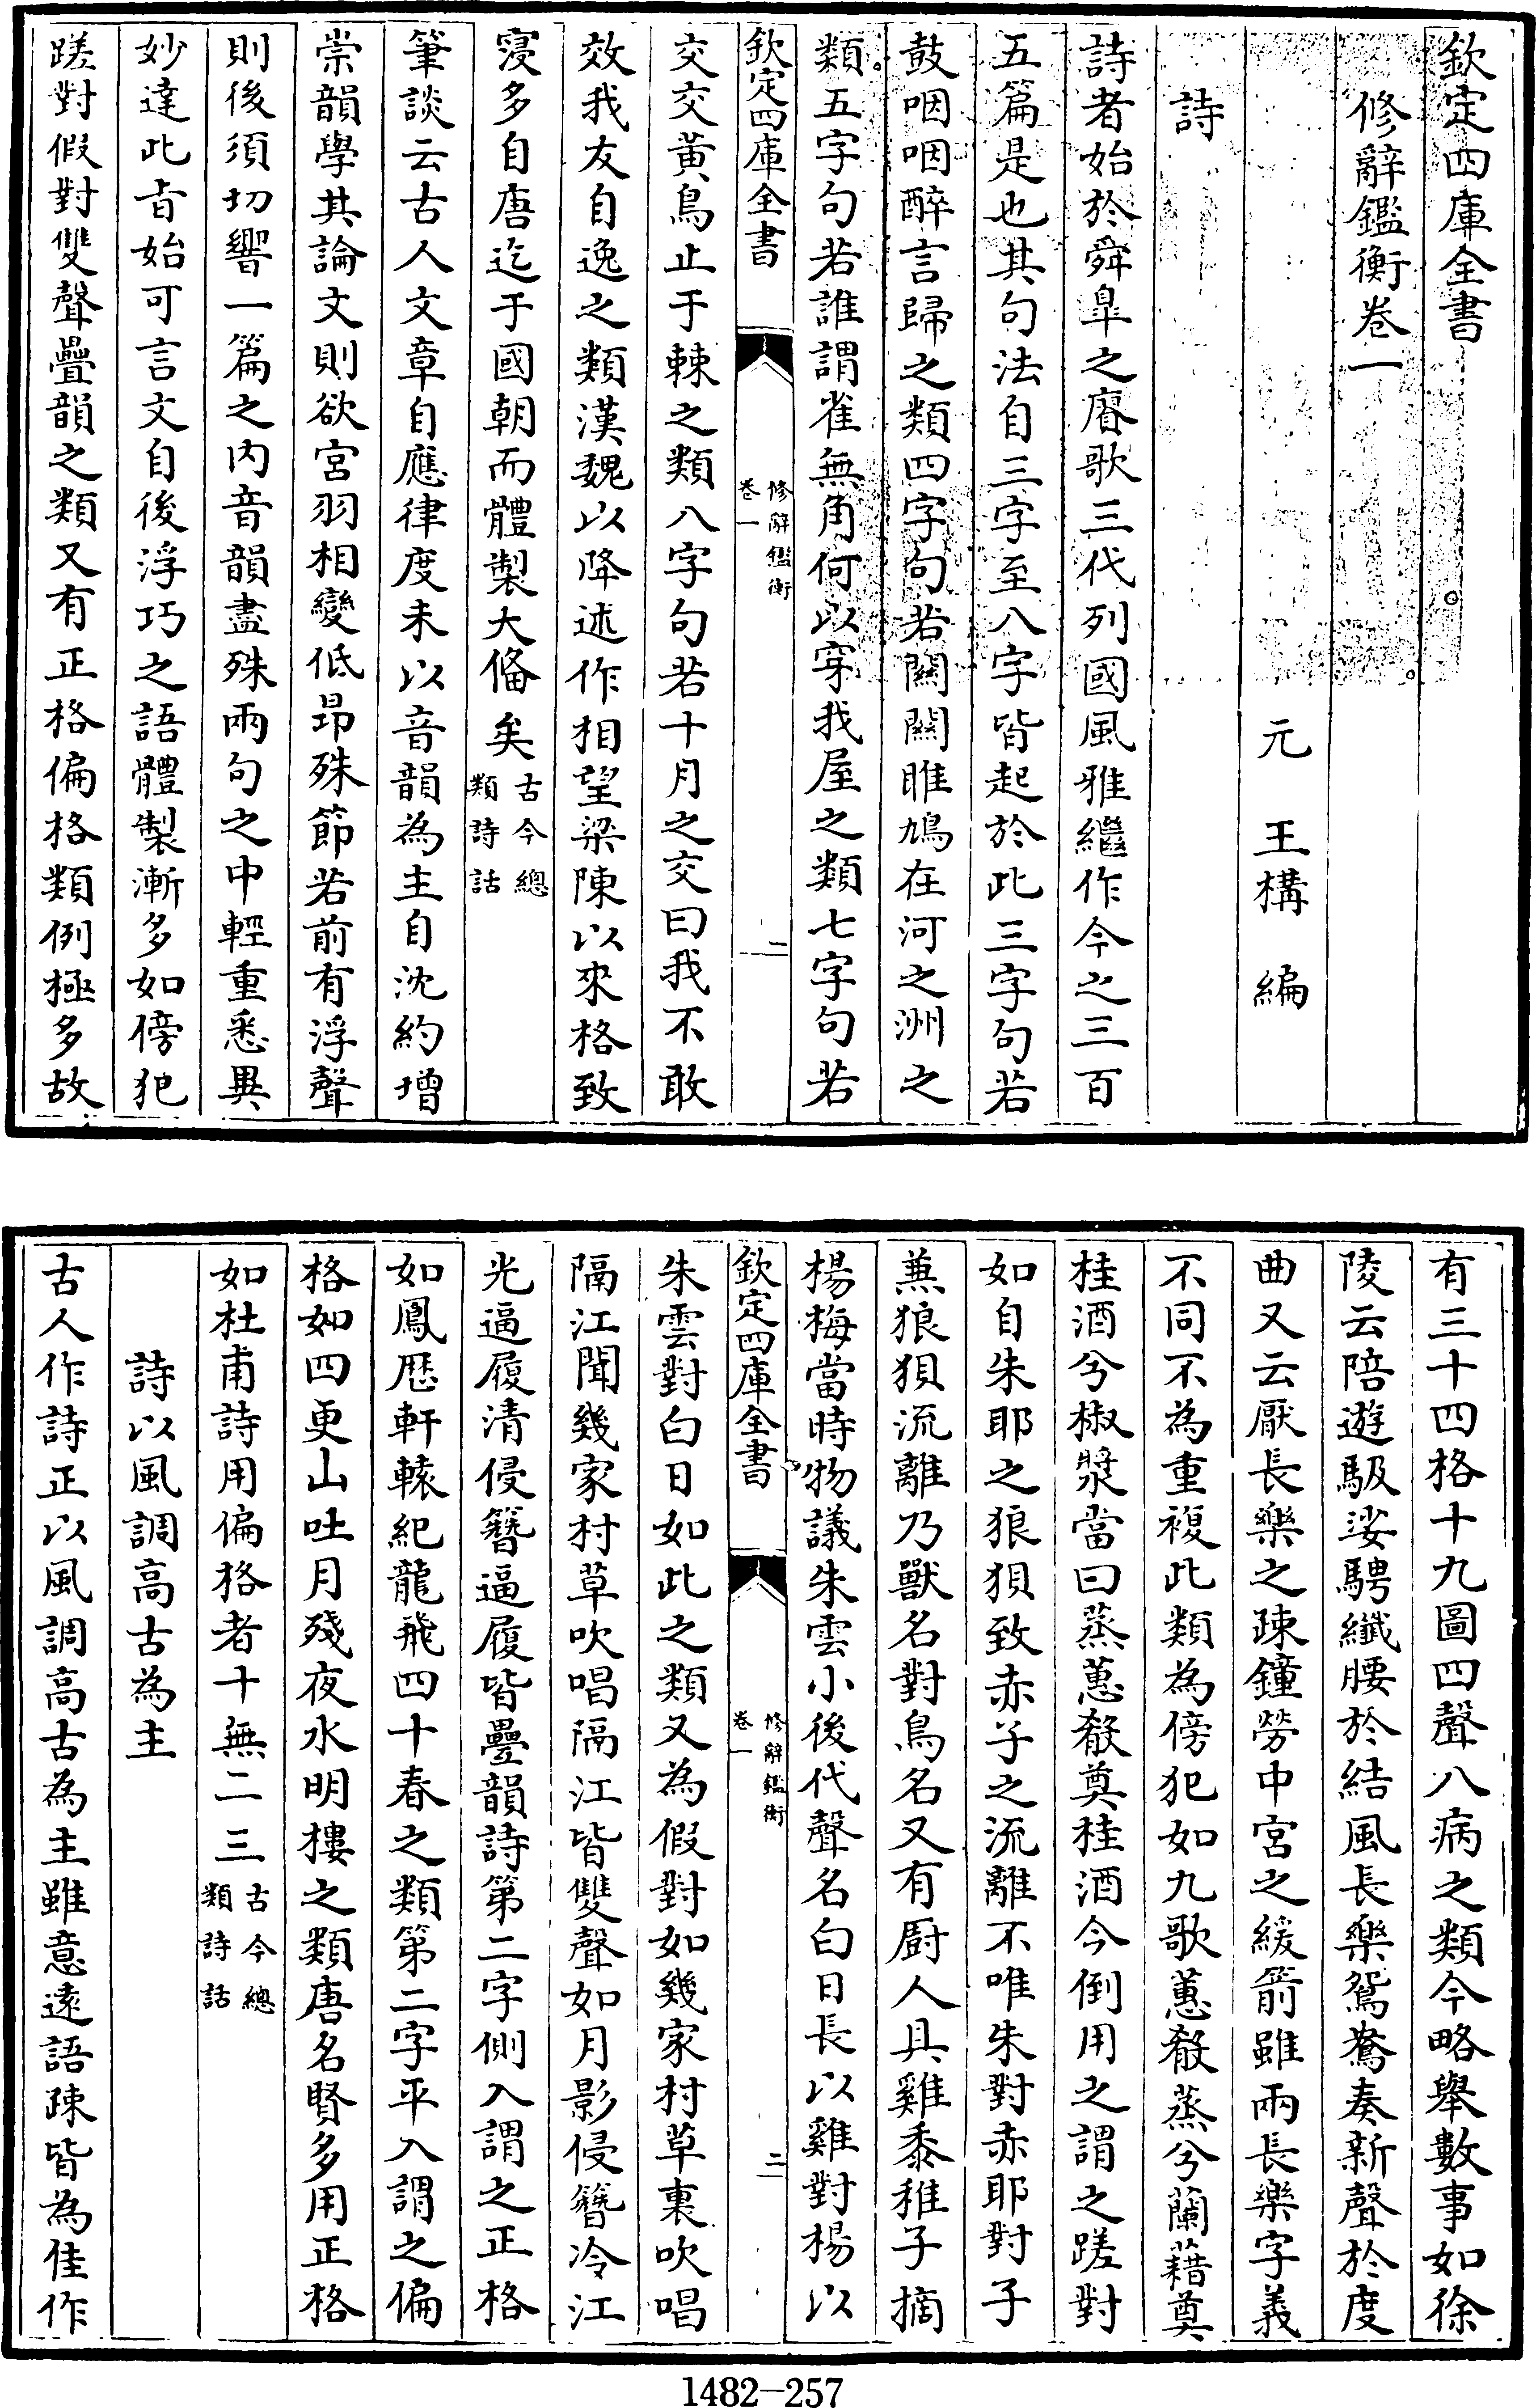 欽定四庫全書
修辭鑑衡卷一
元　王構　編
詩
詩者始於舜臯之賡歌三代列國風雅繼作今之三百
五篇是也其句法自三字至八字皆起於此三字句若
鼓咽咽醉言歸之類四字句若關關雎鳩在河之洲之
類五字句若誰謂雀無角何以穿我屋之類七字句若
欽定四庫全書
修辭鑑衡
卷一
一
交交黃鳥止于棘之類八字句若十月之交曰我不敢
效我友自逸之類漢魏以降述作相望梁陳以來格致
寖多自唐迄于國朝而體製大備矣古今總類詩話
筆談云古人文章自應律度未以音韻為主自沈約增
崇韻學其論文則欲宮羽相變低昂殊節若前有浮聲
則後須切響一篇之內音韻盡殊兩句之中輕重悉異
妙達此㫖始可言文自後浮巧之語體製漸多如傍犯
蹉對假對雙聲疊韻之類又有正格偏格類例極多故
有三十四格十九圖四聲八病之類今略舉數事如徐
陵云陪遊馺娑騁纖腰於結風長樂鴛鴦奏新聲於度
曲又云厭長樂之疎鐘勞中宮之緩箭雖兩長樂字義
不同不為重複此類為傍犯如九歌蕙殽蒸兮蘭藉奠
桂酒兮椒漿當曰蒸蕙殽奠桂酒今倒用之謂之蹉對
如自朱耶之狼狽致赤子之流離不唯朱對赤耶對子
兼狼狽流離乃獸名對鳥名又有厨人具雞黍稚子摘
楊梅當時物議朱雲小後代聲名白日長以雞對楊以
欽定四庫全書
修辭鑑衡
卷一
二
朱雲對白日如此之類又為假對如幾家村草裏吹唱
隔江聞幾家村草吹唱隔江皆雙聲如月影侵簪冷江
光逼履清侵簪逼履皆疊韻詩第二字側入謂之正格
如鳳厯軒轅紀龍飛四十春之類第二字平入謂之偏
格如四更山吐月殘夜水明樓之類唐名賢多用正格
如杜甫詩用偏格者十無二三古今總類詩話
詩以風調高古為主
古人作詩正以風調高古為主雖意遠語疎皆為佳作
1482—257